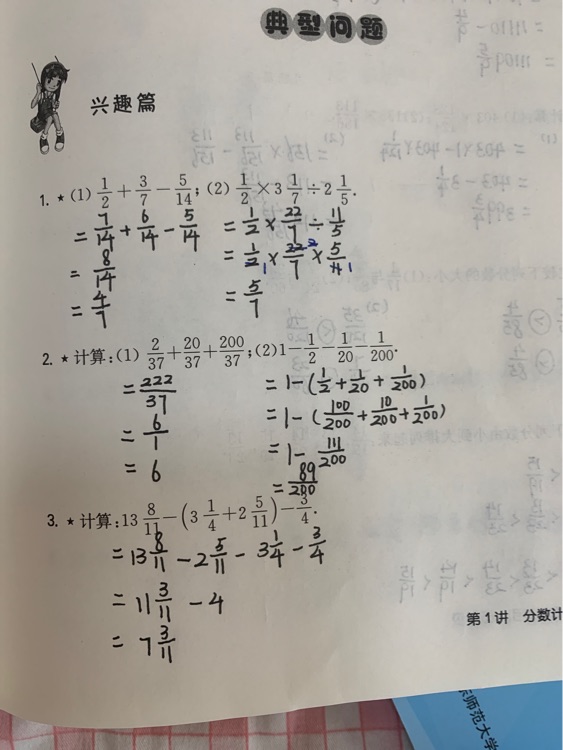 典型问题
兴趣篇
1. ★ (1) 1/2 + 3/7 − 5/14; (2) 1/2 × 3 1/7 ÷ 2 1/5.
= 7/14 + 6/14 − 5/14
= 8/14
= 4/7
= 1/2 × 22/7 ÷ 11/5
= 1/2 1 × 22/7 2 × 5/11 1
= 5/7
2. ★ 计算: (1) 2/37 + 20/37 + 200/37; (2) 1 − 1/2 − 1/20 − 1/200.
= 222/37
= 6/1
= 6
= 1 − (1/2 + 1/20 + 1/200)
= 1 − (100/200 + 10/200 + 1/200)
= 1 − 111/200
= 89/200
3. ★ 计算: 13 8/11 − (3 1/4 + 2 5/11) − 3/4.
= 13 8/11 − 2 5/11 − 3 1/4 − 3/4
= 11 3/11 − 4
= 7 3/11
第1讲 分数计
师范大学